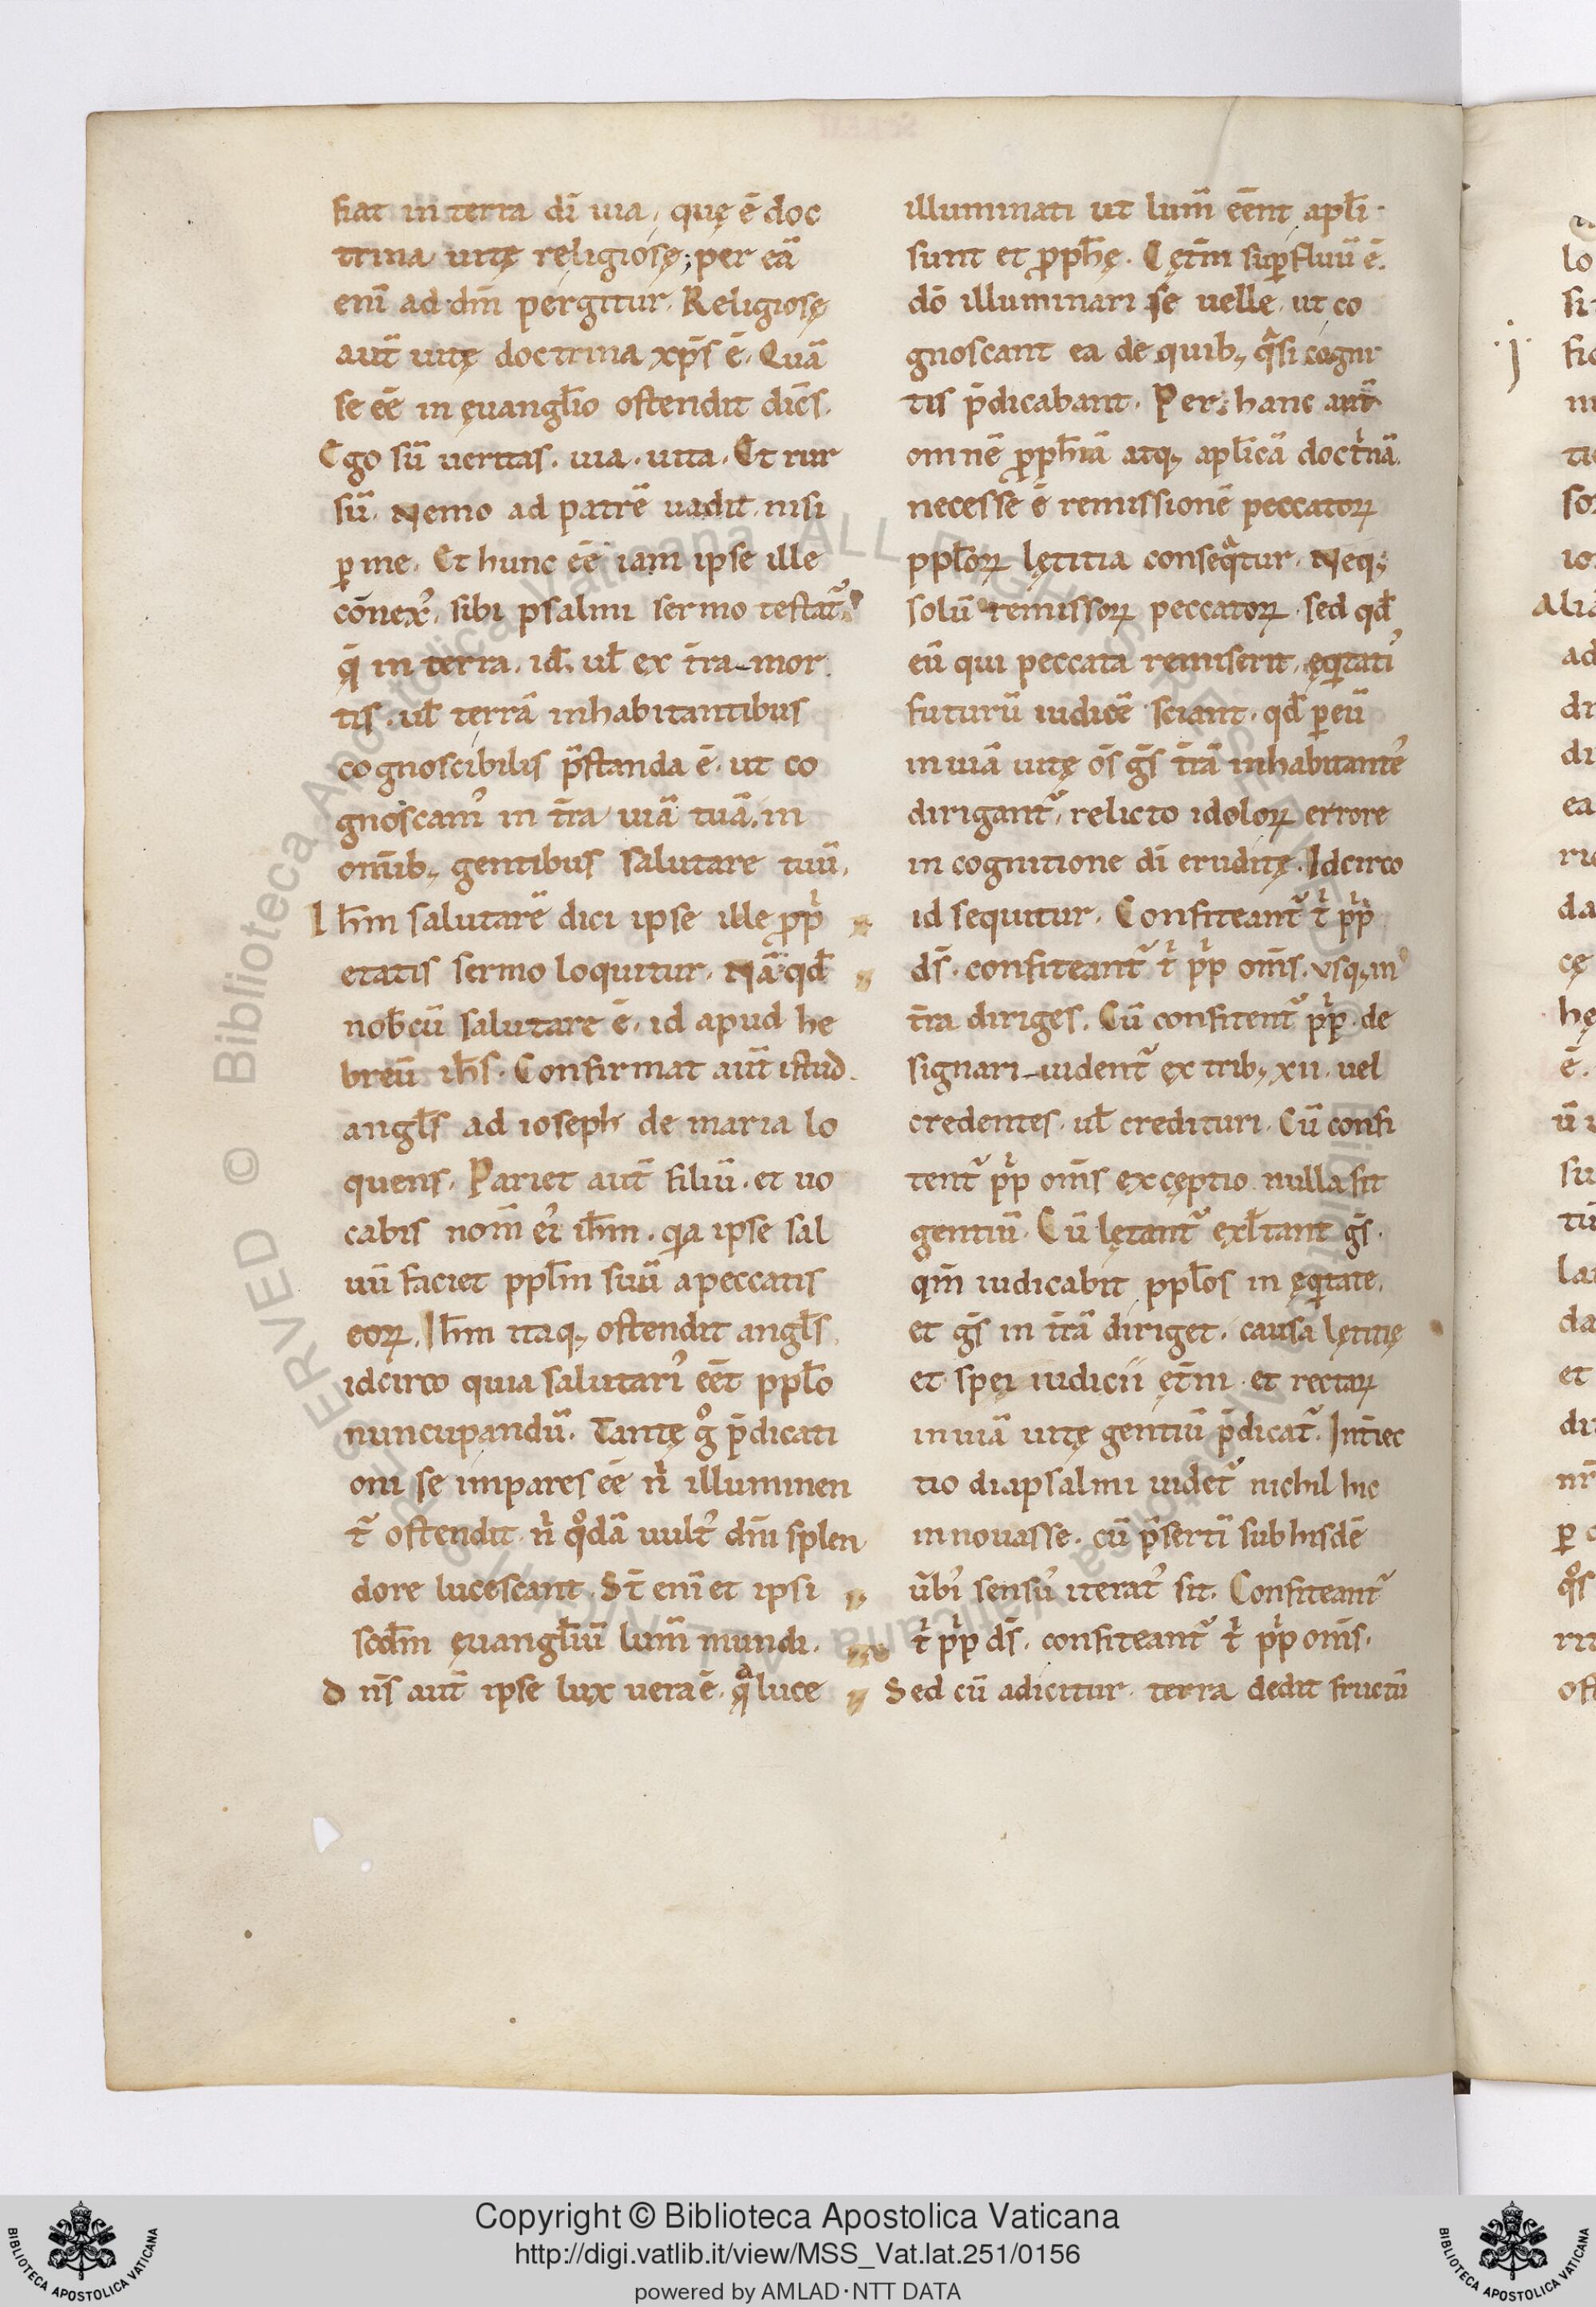 fiat in terra dī uia, quę ē doc
trina uitę religiosę; per eā
enī ad dm̄ pergitur. Religiosę
aut̄ uitę doctrina xp̄s ē. Quā
se eē in ęuangl̄io ostendit dicēs.
Ego sū ueritas. uia. uita. Et rur
sū. Nemo ad patrē uadit. nisi
ꝑ me. Et hunc eē iam ipse ille
cōnexꝰ. sibi psalmi sermo testat᷑.
q̄ in terra. id. ul̄ ex t̄ra mor
tis. ul̄ terrā inhabitantibus
cognoscibilis p̄standa ē. ut co
gnoscamꝰ in t̄ra uiā tuā. in
omīb; gentibus salutare tuū.
Ihm̄ salutarē dici ipse ille ꝓpͥ
etatis sermo loquitur. Nā qd̄
nob̄cū salutare ē. id apud he
breū ih̄s. Confirmat aut̄ istud
angl̄s ad ioseph de maria lo
quens. Pariet aut̄ filiū. et uo
cabis nom̄ eiꝰ ih̄m. qia ipse sal
uū faciet ppl̄m suū a peccatis
eoꝝ. Ih̄m itaq; ostendit angl̄s
idcirco quia salutarꝰ eēt ppl̄o
nuncupandū. Tantę gͦ p̄dicati
oni se impares eē nͥ illuminen
t᷑ ostendit. nͥ qͦdā uultꝰ dn̄i splen
dore lucescant. St̄ enī et ipsi
scd̄m ęuangl̄iū lum̄ mundi.
Dn̄s aut̄ ipse lux uera ē. qͣ luce
illuminati ut lum̄ eēnt apl̄i
sunt et ꝓph̄ę. Cęt̄m suꝑfluū ē.
dō illuminari se uelle. ut co
gnoscant ea de quib; qͣsi cogni
tis p̄dicabant. Per hanc aut̄
omnē ꝓph̄iā atq; apl̄icā doctͥnā.
necesse ē remissionē peccatoꝝ
ppl̄oꝝ lętitia conseqͣtur. Neq;
solū remissoꝝ peccatoꝝ. sed qd̄
eū qui peccata remiserit. ęqͥtatꝰ
futurū iudicē sciant. qd̄ ꝑ eū
in uiā uitę os̄ gs̄ t̄rā inhabitantеꝰ
dirigant᷑, relicto idoloꝝ errore
in cognitione dī eruditę. Idcirco
id sequitur. Confiteant᷑ tͥ ppͥ
ds̄. confiteant᷑ tͥ ppͥ oms̄. usq; in
t̄ra diriges. Cū confitent᷑ ppͥ. de
signari uident᷑ ex trib; xii. uel
credentes. ul̄ credituri. Cū confi
tent᷑ ppͥ oms̄ excęptio nulla sit
gentiū. Cū lętant᷑ exl̄tant gs̄.
qm̄ iudicabit ppl̄os in ęqͥtate.
et gs̄ in t̄rā diriget. causa lętitię
et spei iudicii ęt̄ni et rectaꝝ
in uiā uitę gentiū p̄dicat᷑. Int̄iec
tio diapsalmi uidet᷑ nichil hic
innouasse. cū p̄sertī sub hisdē
ūbiꝰ sensuꝰ iteratꝰ sit. Confiteant᷑
tͥ ppͥ ds̄. confiteant᷑ tͥ ppͥ oms̄.
Sed cū adicitur. terra dedit fructū
Copyright © Biblioteca Apostolica Vaticana
http://digi.vatlib.it/view/MSS_Vat.lat.251/0156
powered by AMLAD·NTT DATA